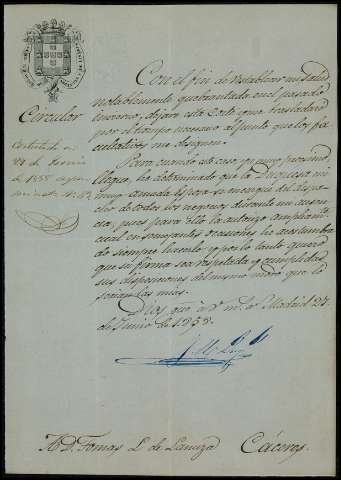 Circular
Contestada en
de 1858
Con el fin de restablecer mi salud
notablemente quebrantada en el pasado
invierno, dejaré esta Corte y me trasladaré
por el tiempo necesario al punto que los fa
cultativos me designen.
Para cuando este caso, ya muy proximo,
llegue, he determinado que la Duquesa mi
muy amada Esposa se encargue del despa
cho de todos los negocios durante mi ausen
cia, pues para ello la autorizo ampliamente
cual en semejantes ocasiones he acostumbra
do siempre hacerlo; y por lo tanto quiero
que su firma sea respetada y cumplidas
sus disposiciones del mismo modo que lo
serían las mias.
Dios gue. á V. m. a. Madrid 27
de Junio de 1858.
A D. Tomas L. de Lanuza Cáceres.